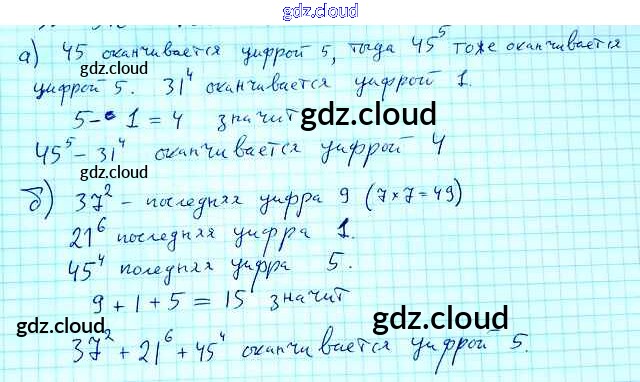 gdz.cloud
а) 45 оканчивается цифрой 5, тогда 45⁵ тоже оканчивается
gdz.cloud
цифрой 5. 31⁴ оканчивается цифрой 1.
5 - 1 = 4 значит
gdz.cloud
gdz.cloud
45⁵ - 31⁴ оканчивается цифрой 4
б) 37² - последняя цифра 9 (7×7=49)
21⁶ последняя цифра 1.
45⁴ поледняя цифра 5.
9 + 1 + 5 = 15 значит
gdz.cloud
gdz.cloud
37² + 21⁶ + 45⁴ оканчивается цифрой 5.
gdz.cloud